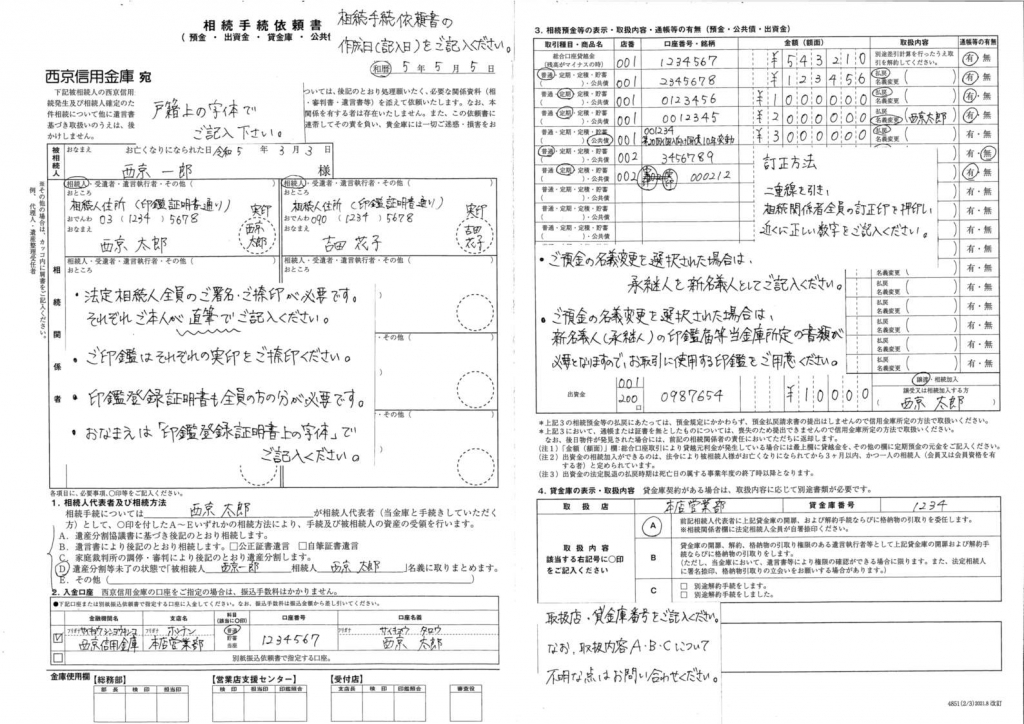 相続手続依頼書
(預金・出資金・貸金庫・公共債
相続手続依頼書の
作成日(記入日)をご記入ください。
和暦 5年5月5日
西京信用金庫 宛
下記被相続人の西京信用
続発生及び相続人確定のた
件相続について他に遺言書
基づき取扱いのうえは、後
かけしません。
戸籍上の字体で
ご記入下さい。
ついては、後記のとおり処理願いたく、必要な関係資料(相
・審判書・遺言書等)を添えて依頼いたします。なお、本
関係を有する者は存在いたしません。また、この依頼書に
連帯してその責を負い、貴金庫には一切ご迷惑・損害をお
被相続人
おなまえ
お亡くなりになられた日 令和5年3月3日
西京 一郎 様
※その他の場合は、カッコ内に肩書をご記入ください。
例、代理人・遺産整理受任者
相続関係者
相続人・受遺者・遺言執行者・その他( )
おところ
相続人住所(印鑑証明書通り)
おでんわ 03(1234)5678
おなまえ
西京 太郎
実印
西京太郎
相続人・受遺者・遺言執行者・その他( )
おところ
相続人住所(印鑑証明書通り)
おでんわ 090(1234)5678
おなまえ
吉田 花子
実印
吉田花子
相続人・受遺者・遺言執行者・その他( )
おところ
相続人・受遺者・遺言執行者・その他( )
おところ
・法定相続人全員のご署名・ご捺印が必要です。
それぞれご本人が直筆でご記入ください。
・ご印鑑はそれぞれの実印をご捺印ください。
・印鑑登録証明書も全員の方の分が必要です。
・おなまえは「印鑑登録証明書上の字体」で
ご記入ください。
・その他( )
・その他( )
各項目に、必要事項、○印等をご記入ください。
1. 相続人代表者及び相続方法
相続手続については 西京 太郎 が相続人代表者(当金庫と手続きしていただく
方)として、○印を付したA～Eいずれかの相続方法により、手続及び被相続人の資産の受領を行います。
A. 遺産分割協議書に基づき後記のとおり相続します。
B. 遺言書により後記のとおり相続します。□公正証書遺言 □自筆証書遺言
C. 家庭裁判所の調停・審判により後記のとおり遺産分割します。
D 遺産分割等未了の状態で「被相続人 西京一郎 相続人 西京 太郎」名義に取りまとめます。
E. その他( )
2. 入金口座 西京信用金庫の口座をご指定の場合は、振込手数料はかかりません。
●下記口座または別紙振込依頼書で指定する口座に入金してください。なお、振込手数料は振込金額から差し引いてください。
金融機関名 支店名 科目(該当に○印) 口座番号 口座名義
フリガナ サイキョウシンヨウキンコ フリガナ ホンテン 普通 フリガナ サイキョウ タロウ
☑ 西京信用金庫 本店営業部 貯蓄 当座 1234567 西京 太郎
□ 別紙振込依頼書で指定する口座。
金庫使用欄
【総務部】
部長 検印 担当印
【営業店支援センター】
検印 担当印 印鑑照合
【受付店】
支店長 検印 担当印 印鑑照合 審査役
3. 相続預金等の表示・取扱内容・通帳等の有無(預金・公共債・出資金)
取引種目・商品名 店番 口座番号・銘柄 金額(額面) 取扱内容 通帳等の有無
総合口座貸越金(残高がマイナスの時) 001 1234567 ¥543210 別途差引計算を行ったうえ取引を解約してください。 有・無
普通・定期・定積・貯蓄( )・公共債 001 2345678 ¥123456 払戻 名義変更( ) 有・無
普通・定期・定積・貯蓄( )・公共債 001 0123456 ¥1000000 払戻 名義変更( ) 有・無
普通・定期・定積・貯蓄( )・公共債 001 0012345 ¥2000000 払戻 名義変更(西京太郎) 有・無
普通・定期・定積・貯蓄( )・公共債 001 001234 ¥3000000 払戻 名義変更( ) 有・無
普通・定期・定積・貯蓄( )・公共債 002 3456789 有・無
普通・定期・定積・貯蓄( )・公共債 002 000212 有・無
普通・定期・定積・貯蓄( )・公共債
普通・定期・定積・貯蓄( )・公共債
訂正方法
二重線を引き、
相続関係者全員の訂正印を押印し
近くに正しい数字をご記入ください。
・ご預金の名義変更を選択された場合は、
承継人を新名義人としてご記入ください。
・ご預金の名義変更を選択された場合は、
新名義人(承継人)の印鑑届等当金庫所定の書類が
必要となりますので、お取引に使用する印鑑をご用意ください。
名義変更( ) 有・無
払戻 名義変更( ) 有・無
払戻 名義変更( ) 有・無
払戻 名義変更( ) 有・無
払戻 名義変更( ) 有・無
出資金 001 200 口 0987654 ¥100000 譲渡・相続加入
譲受又は相続加入する方
(西京 太郎)
*上記3の相続預金等の払戻にあたっては、預金規定にかかわらず、預金払戻請求書の提出はしませんので信用金庫所定の方法で取扱いください。
*上記3において、通帳または証書を無としたものについては、喪失のため提出できませんので信用金庫所定の方法で取扱いください。
なお、後日物件が発見された場合には、前記の相続関係者の責任においてただちに返却します。
(注1)「金額(額面)」欄:総合口座取引により貸越元利金が発生している場合には最上欄に貸越金を、その他の欄に定期預金の元金をご記入ください。
(注2)出資金の相続加入ができるのは、法令により被相続人様がお亡くなりになられてから3ヶ月以内、かつ一人の相続人(会員又は会員資格を有する者)と定められています。
(注3)出資金の法定脱退の払戻時期は死亡日の属する事業年度の終了時以降となります。
4. 貸金庫の表示・取扱内容 貸金庫契約がある場合は、取扱内容に応じて別途書類が必要です。
取扱店 本店営業部 貸金庫番号 1234
取扱内容
該当する右記番号に○印
をご記入ください
A 前記相続人代表者に上記貸金庫の開扉、および解約手続ならびに格納物の引取りを委任します。
※相続関係者欄に法定相続人全員が自署捺印ください。
B 貸金庫の開扉、解約、格納物の引取り権限のある遺言執行者等として上記貸金庫の開扉および解約手
続ならびに格納物の引取りをします。
(ただし、当金庫において、遺言書等により権限の確認ができる場合に限ります。また、法定相続人
に署名捺印、格納物引取りの立会いをお願いする場合があります。)
C □ 別途解約手続をします。
□ 別途解約手続をしました。
取扱店・貸金庫番号をご記入ください。
なお、取扱内容A・B・Cについて
不明な点はお問い合わせください。
4851(2/3)2021.8改訂